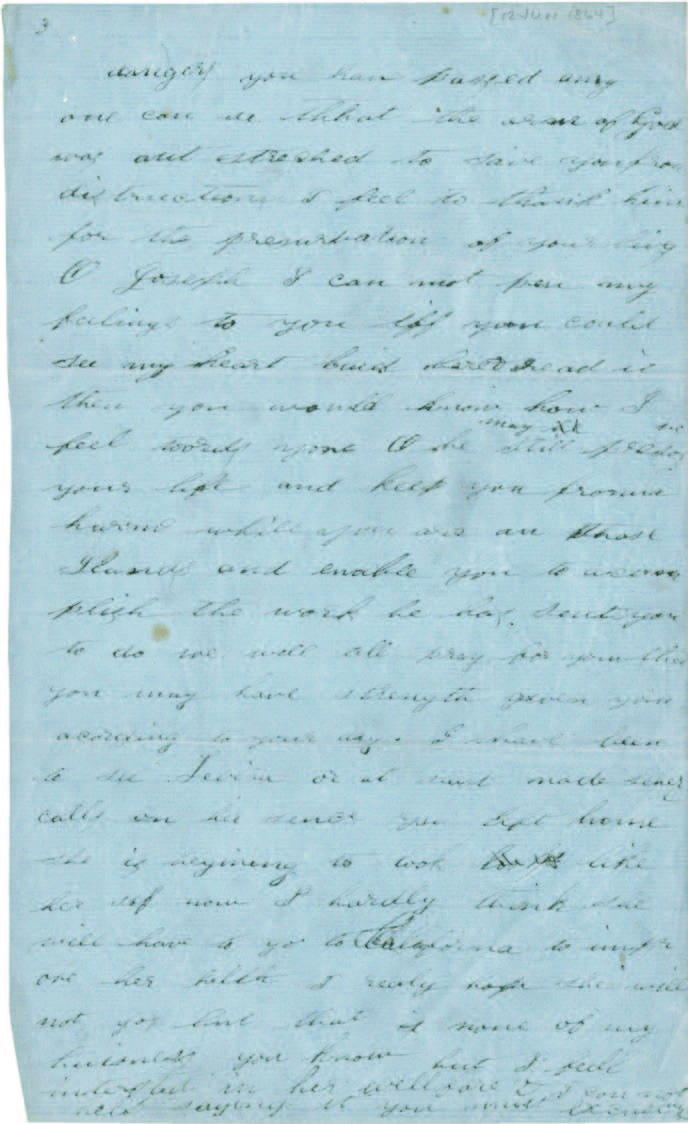 3
[12 JUN 1864]
dangers you have passed any
one can se thhat the arm of God
was out streched to save you from
distruction I feel to thank him
for the preservation of your live
O Joseph I can not pen my
feelings to you iff you could
see my heart and read it
then you would know how I
feel words O he may still
your life and keep you from
while you are on those
Ilands and enable you to acom
plish the work he has sent you
to do we will all pray for you that
you may have strength given you
acording to your day I have been
to see Levira or at least made
calls on her you left home
she is begining to look like
her self now I hardly think she
will have to go to California to impr
ove her helth I realy hope she will
not go but that is none of my
buisness you know but I feel
in her wellfare I can not
help saying it you must